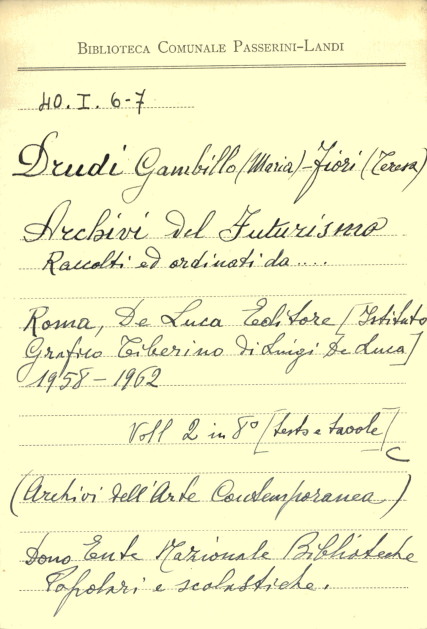 BIBLIOTECA COMUNALE PASSERINI-LANDI
40. I. 6-7
Drudi Gambillo (Maria) - Fiori (Teresa)
Archivi del Futurismo
Raccolti ed ordinati da....
Roma, De Luca Editore [Istituto
Grafico Tiberino di Luigi De Luca]
1958-1962
Voll 2 in 8° [testo e tavole]
C
(Archivi dell'Arte Contemporanea)
Dono Ente Nazionale Biblioteche
Popolari e scolastiche.